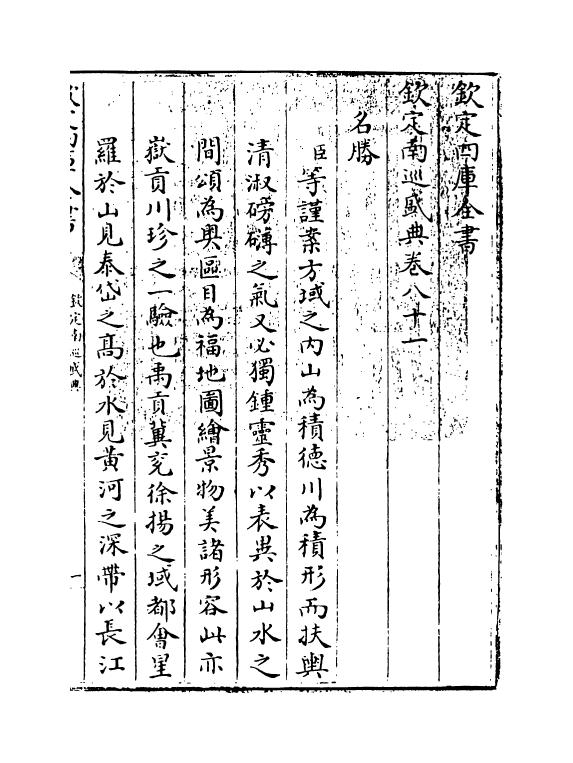 欽定四庫全書
欽定南巡盛典卷八十一
名勝
臣等謹案方域之內山為積德川為積形而扶輿
清淑磅礴之氣又必獨鍾靈秀以表異於山水之
間頌為奧區目為福地圖繪景物美諸形容此亦
嶽貢川珍之一驗也禹貢冀兖徐揚之域都會星
羅於山見泰岱之高於水見黃河之深帶以長江
欽定南巡盛典
一